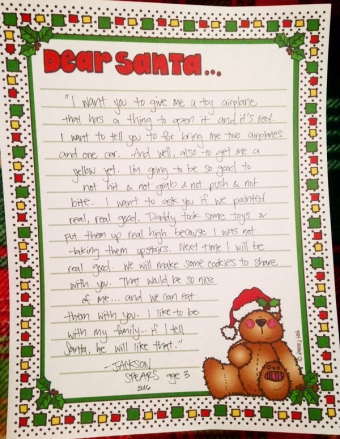 Dear Santa...
"I want you to give me a toy airplane
that has a thing to open it and it's red.
I want to tell you to for bring me two airplanes
and one car. And well, also to get me a
yellow yet. I'm going to be so good to
not hit & not grab & not push & not
bite. I want to ask you if we painted
real, real good. Daddy took some toys &
put them up real high because I was not
taking them upstairs. Next time I will be
real good. We will make some cookies to share
with you. That would be so nice
of me... and we can eat
them with you. I like to be
with my family... if I tell
Santa, he will like that."
- JACKSON
SPEARS age 3
2016